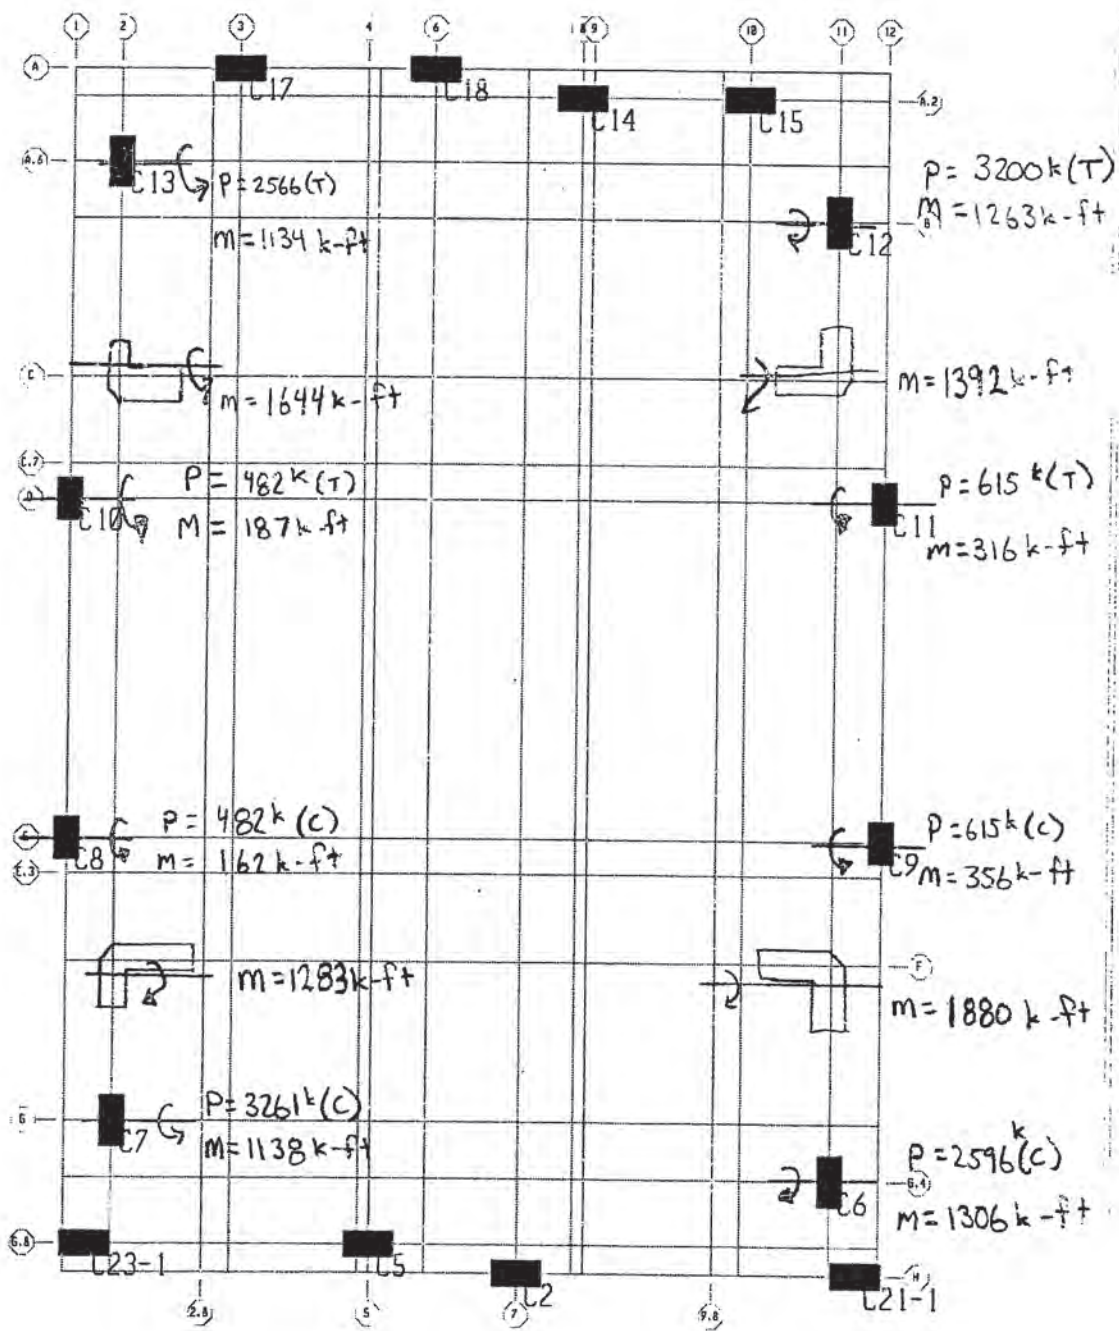 1 2 3 4 6 8 9 10 11 12
A
C17 C18
C14 C15
A.2
A.6
C13 P=2566(T)
m=1134 k-ft
P= 3200k(T)
M=1263k-ft
B
C12
m=1644k-ft
m=1392k-ft
C.7
D
C10
P= 482k(T)
M= 187k-ft
C11
P=615k(T)
m=316k-ft
C8
P= 482k (C)
m= 162k-ft
C9
P=615k(C)
m=356k-ft
E.3
m=1283k-ft
F
m=1880 k-ft
C7
P=3261k(C)
m=1138k-ft
C6
P=2596k(C)
G.4
m=1306k-ft
G.8
C23-1 C5
C2
C21-1
H
2.8 5 7 9.8